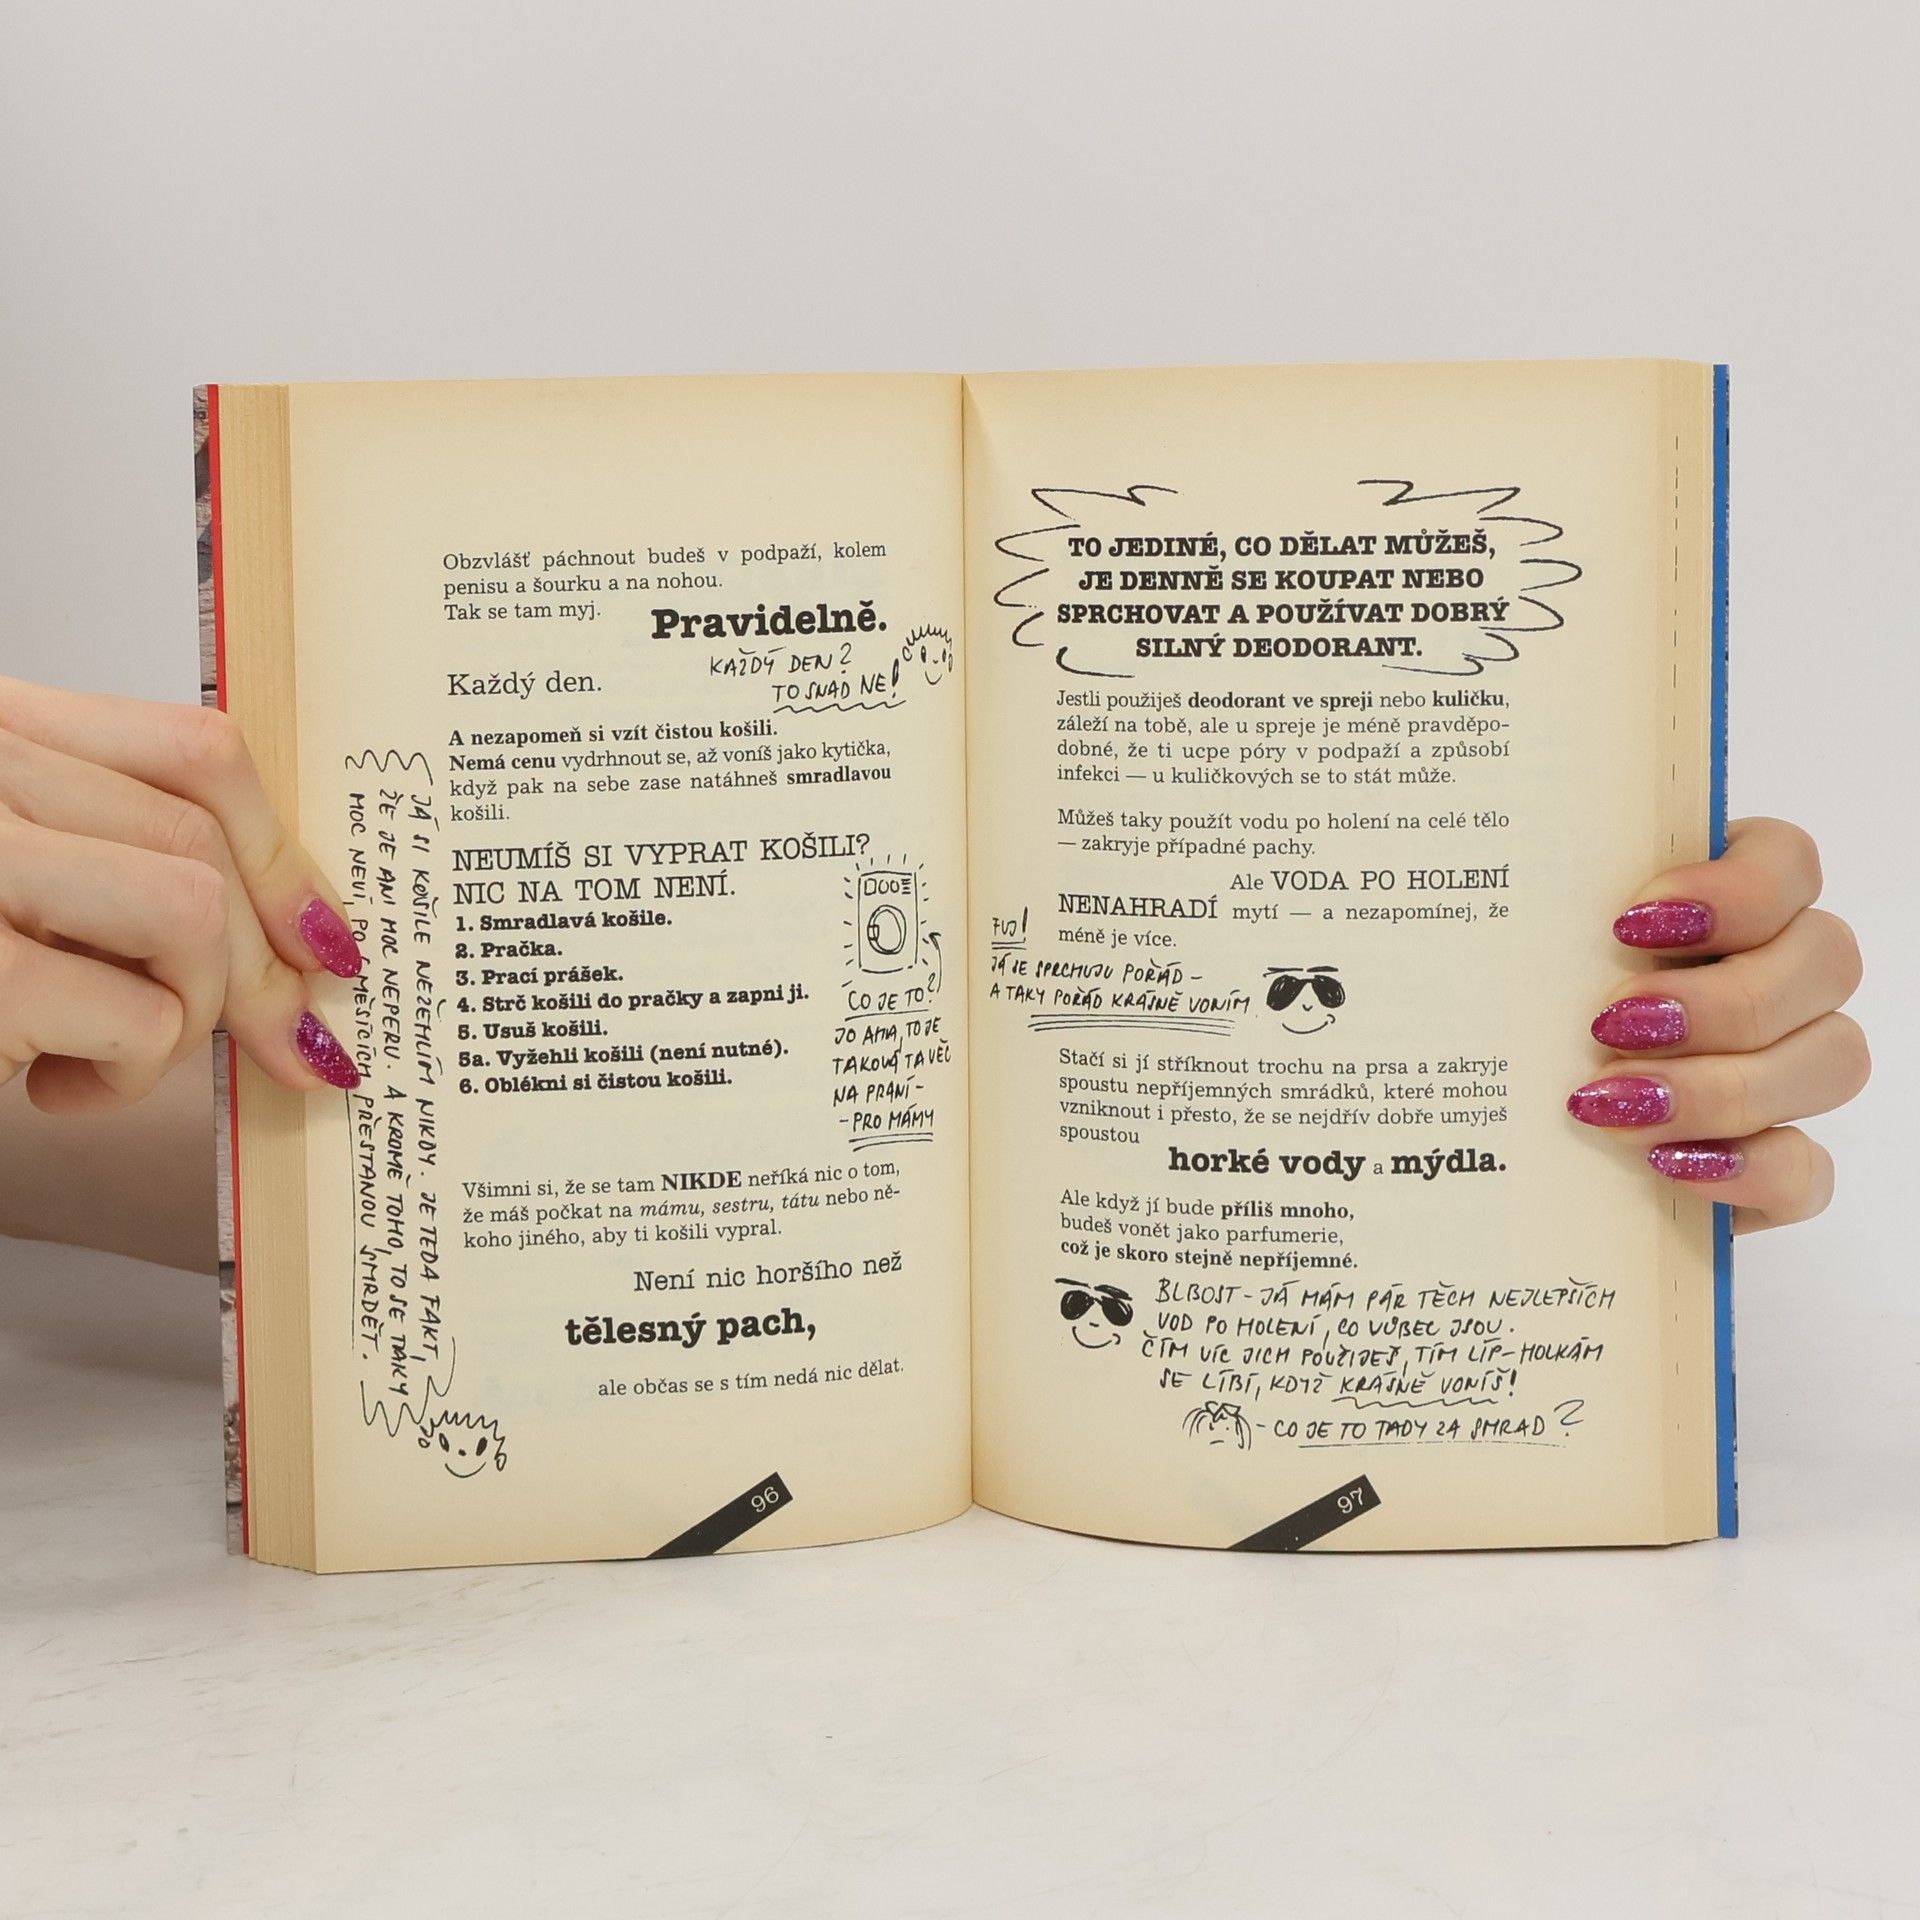 Obzvlášť páchnout budeš v podpaží, kolem
penisu a šourku a na nohou.
Tak se tam myj.
Pravidelně.
KAŽDÝ DEN?
TO SNAD NE!
Každý den.
A nezapomeň si vzít čistou košili.
Nemá cenu vydrhnout se, až voníš jako kytička,
když pak na sebe zase natáhneš smradlavou
košili.
NEUMÍŠ SI VYPRAT KOŠILI?
NIC NA TOM NENÍ.
1. Smradlavá košile.
2. Pračka.
3. Prací prášek.
4. Strč košili do pračky a zapni ji.
5. Usuš košili.
5a. Vyžehli košili (není nutné).
6. Oblékni si čistou košili.
CO JE TO?
JO AHA, TO JE
TAKOVÁ TA VĚC
NA PRANÍ –
– PRO MÁMY
JÁ SI KOŠILE NEŽEHLÍM NIKDY. JE TEDA FAKT,
ŽE JE ANI MOC NEPERU. A KROMĚ TOHO, TO SE TAKY
MOC NEVÍ, PO MĚSÍCÍCH PŘESTANOU SMRDĚT.
Všimni si, že se tam NIKDE neříká nic o tom,
že máš počkat na mámu, sestru, tátu nebo ně-
koho jiného, aby ti košili vypral.
Není nic horšího než
tělesný pach,
ale občas se s tím nedá nic dělat.
96
TO JEDINÉ, CO DĚLAT MŮŽEŠ,
JE DENNĚ SE KOUPAT NEBO
SPRCHOVAT A POUŽÍVAT DOBRÝ
SILNÝ DEODORANT.
Jestli použiješ deodorant ve spreji nebo kuličku,
záleží na tobě, ale u spreje je méně pravděpo-
dobné, že ti ucpe póry v podpaží a způsobí
infekci — u kuličkových se to stát může.
Můžeš taky použít vodu po holení na celé tělo
— zakryje případné pachy.
Ale VODA PO HOLENÍ
NENAHRADÍ mytí — a nezapomínej, že
méně je více.
FUJ!
JÁ SE SPRCHUJU POŘÁD –
A TAKY POŘÁD KRÁSNĚ VONÍM
Stačí si jí stříknout trochu na prsa a zakryje
spoustu nepříjemných smrádků, které mohou
vzniknout i přesto, že se nejdřív dobře umyješ
spoustou
horké vody a mýdla.
Ale když jí bude příliš mnoho,
budeš vonět jako parfumerie,
což je skoro stejně nepříjemné.
BLBOST – JÁ MÁM PÁR TĚCH NEJLEPŠÍCH
VOD PO HOLENÍ, CO VŮBEC JSOU.
ČÍM VÍC JICH POUŽIJEŠ, TÍM LÍP – HOLKÁM
SE LÍBÍ, KDYŽ KRÁSNĚ VONÍŠ!
– CO JE TO TADY ZA SMRAD?
97